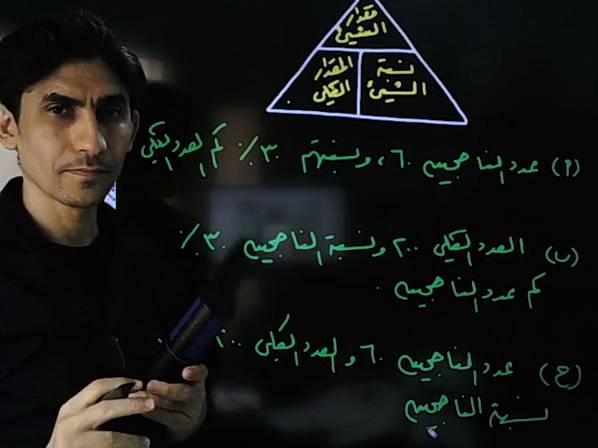 مقدار
الشيئ
المقدار
الكلي
نسبة
الشيئ
(أ) عدد الناجحين ٦٠، ونسبتهم ٣٠٪ كم العدد الكلي
(ب) العدد الكلي ٢٠٠ ونسبة الناجحين ٣٠٪
كم عدد الناجحين.
(ج) عدد الناجحين ٦٠ والعدد الكلي
نسبة الناجحين